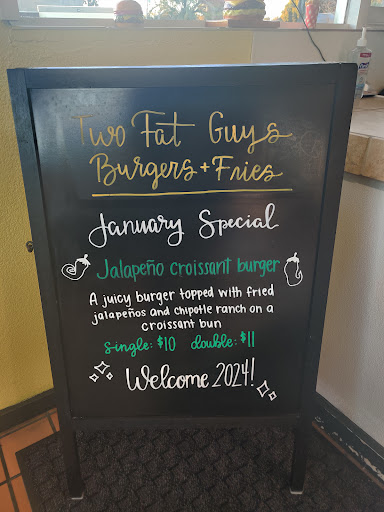 Two Fat Guys
Burgers + Fries
January Special
Jalapeño croissant burger
A juicy burger topped with fried
jalapeños and chipotle ranch on a
croissant bun
single: $10 double: $11
Welcome 2024!